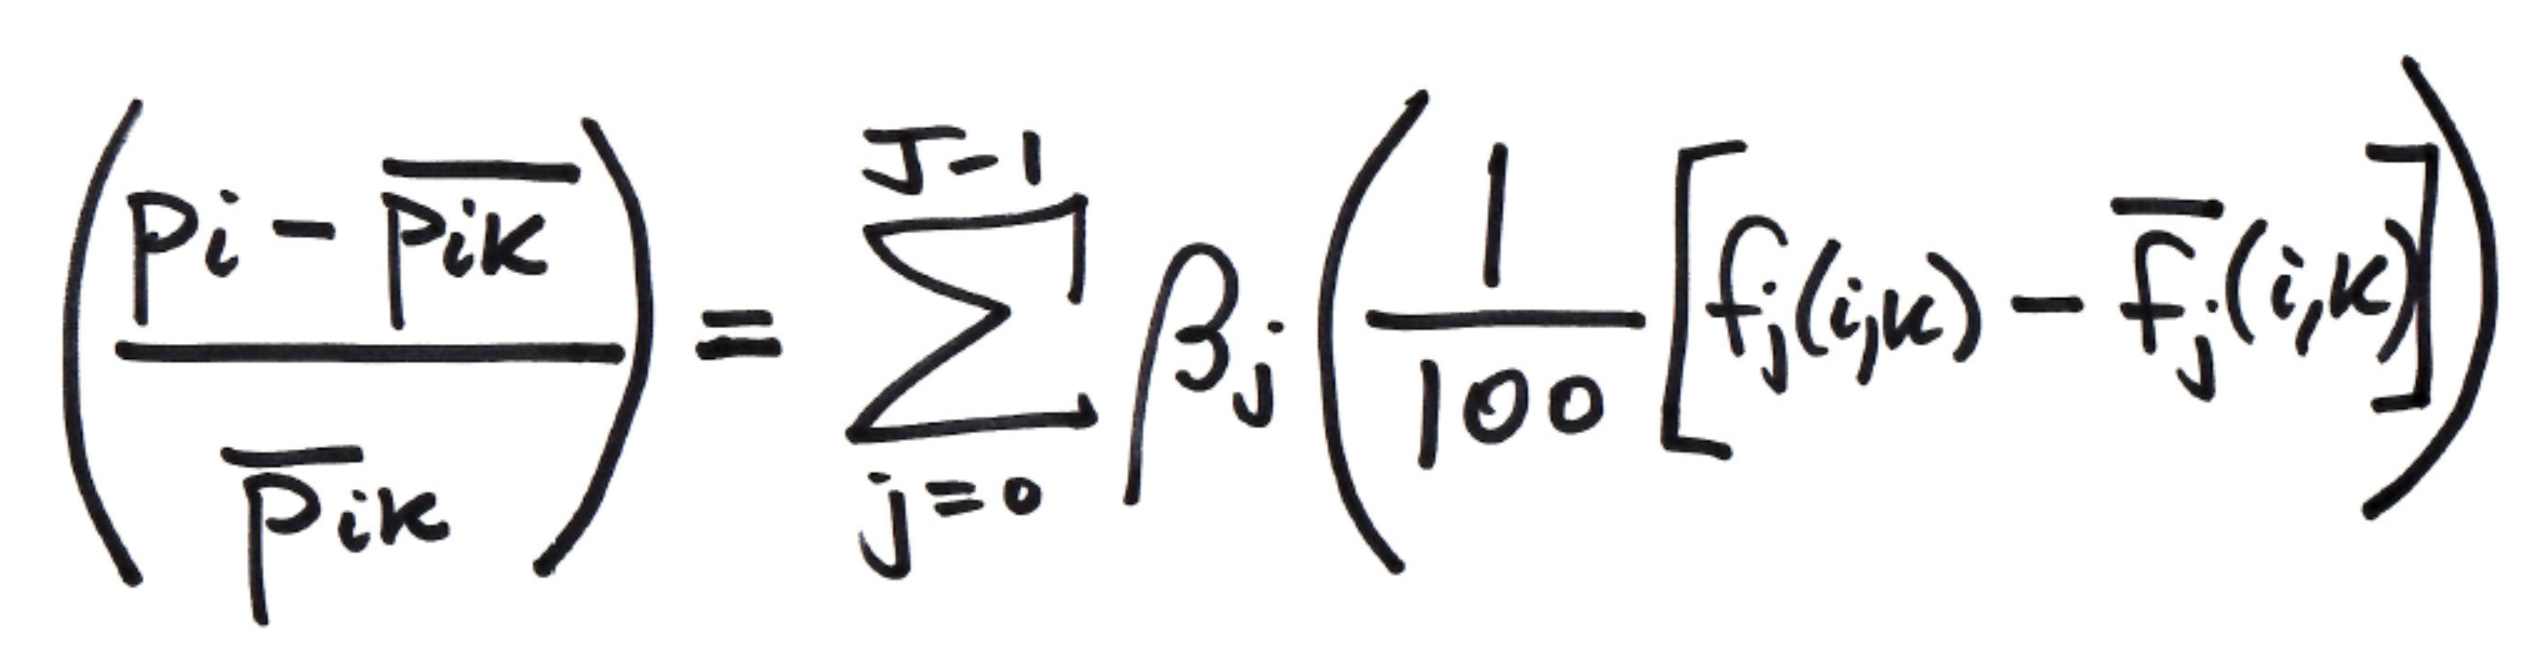 $$\left(\frac{p_i - \overline{p_{ik}}}{\overline{p}_{ik}}\right) = \sum_{j=0}^{J-1} \beta_j \left(\frac{1}{100}\left[f_j(i,k) - \overline{f}_j(i,k)\right]\right)$$